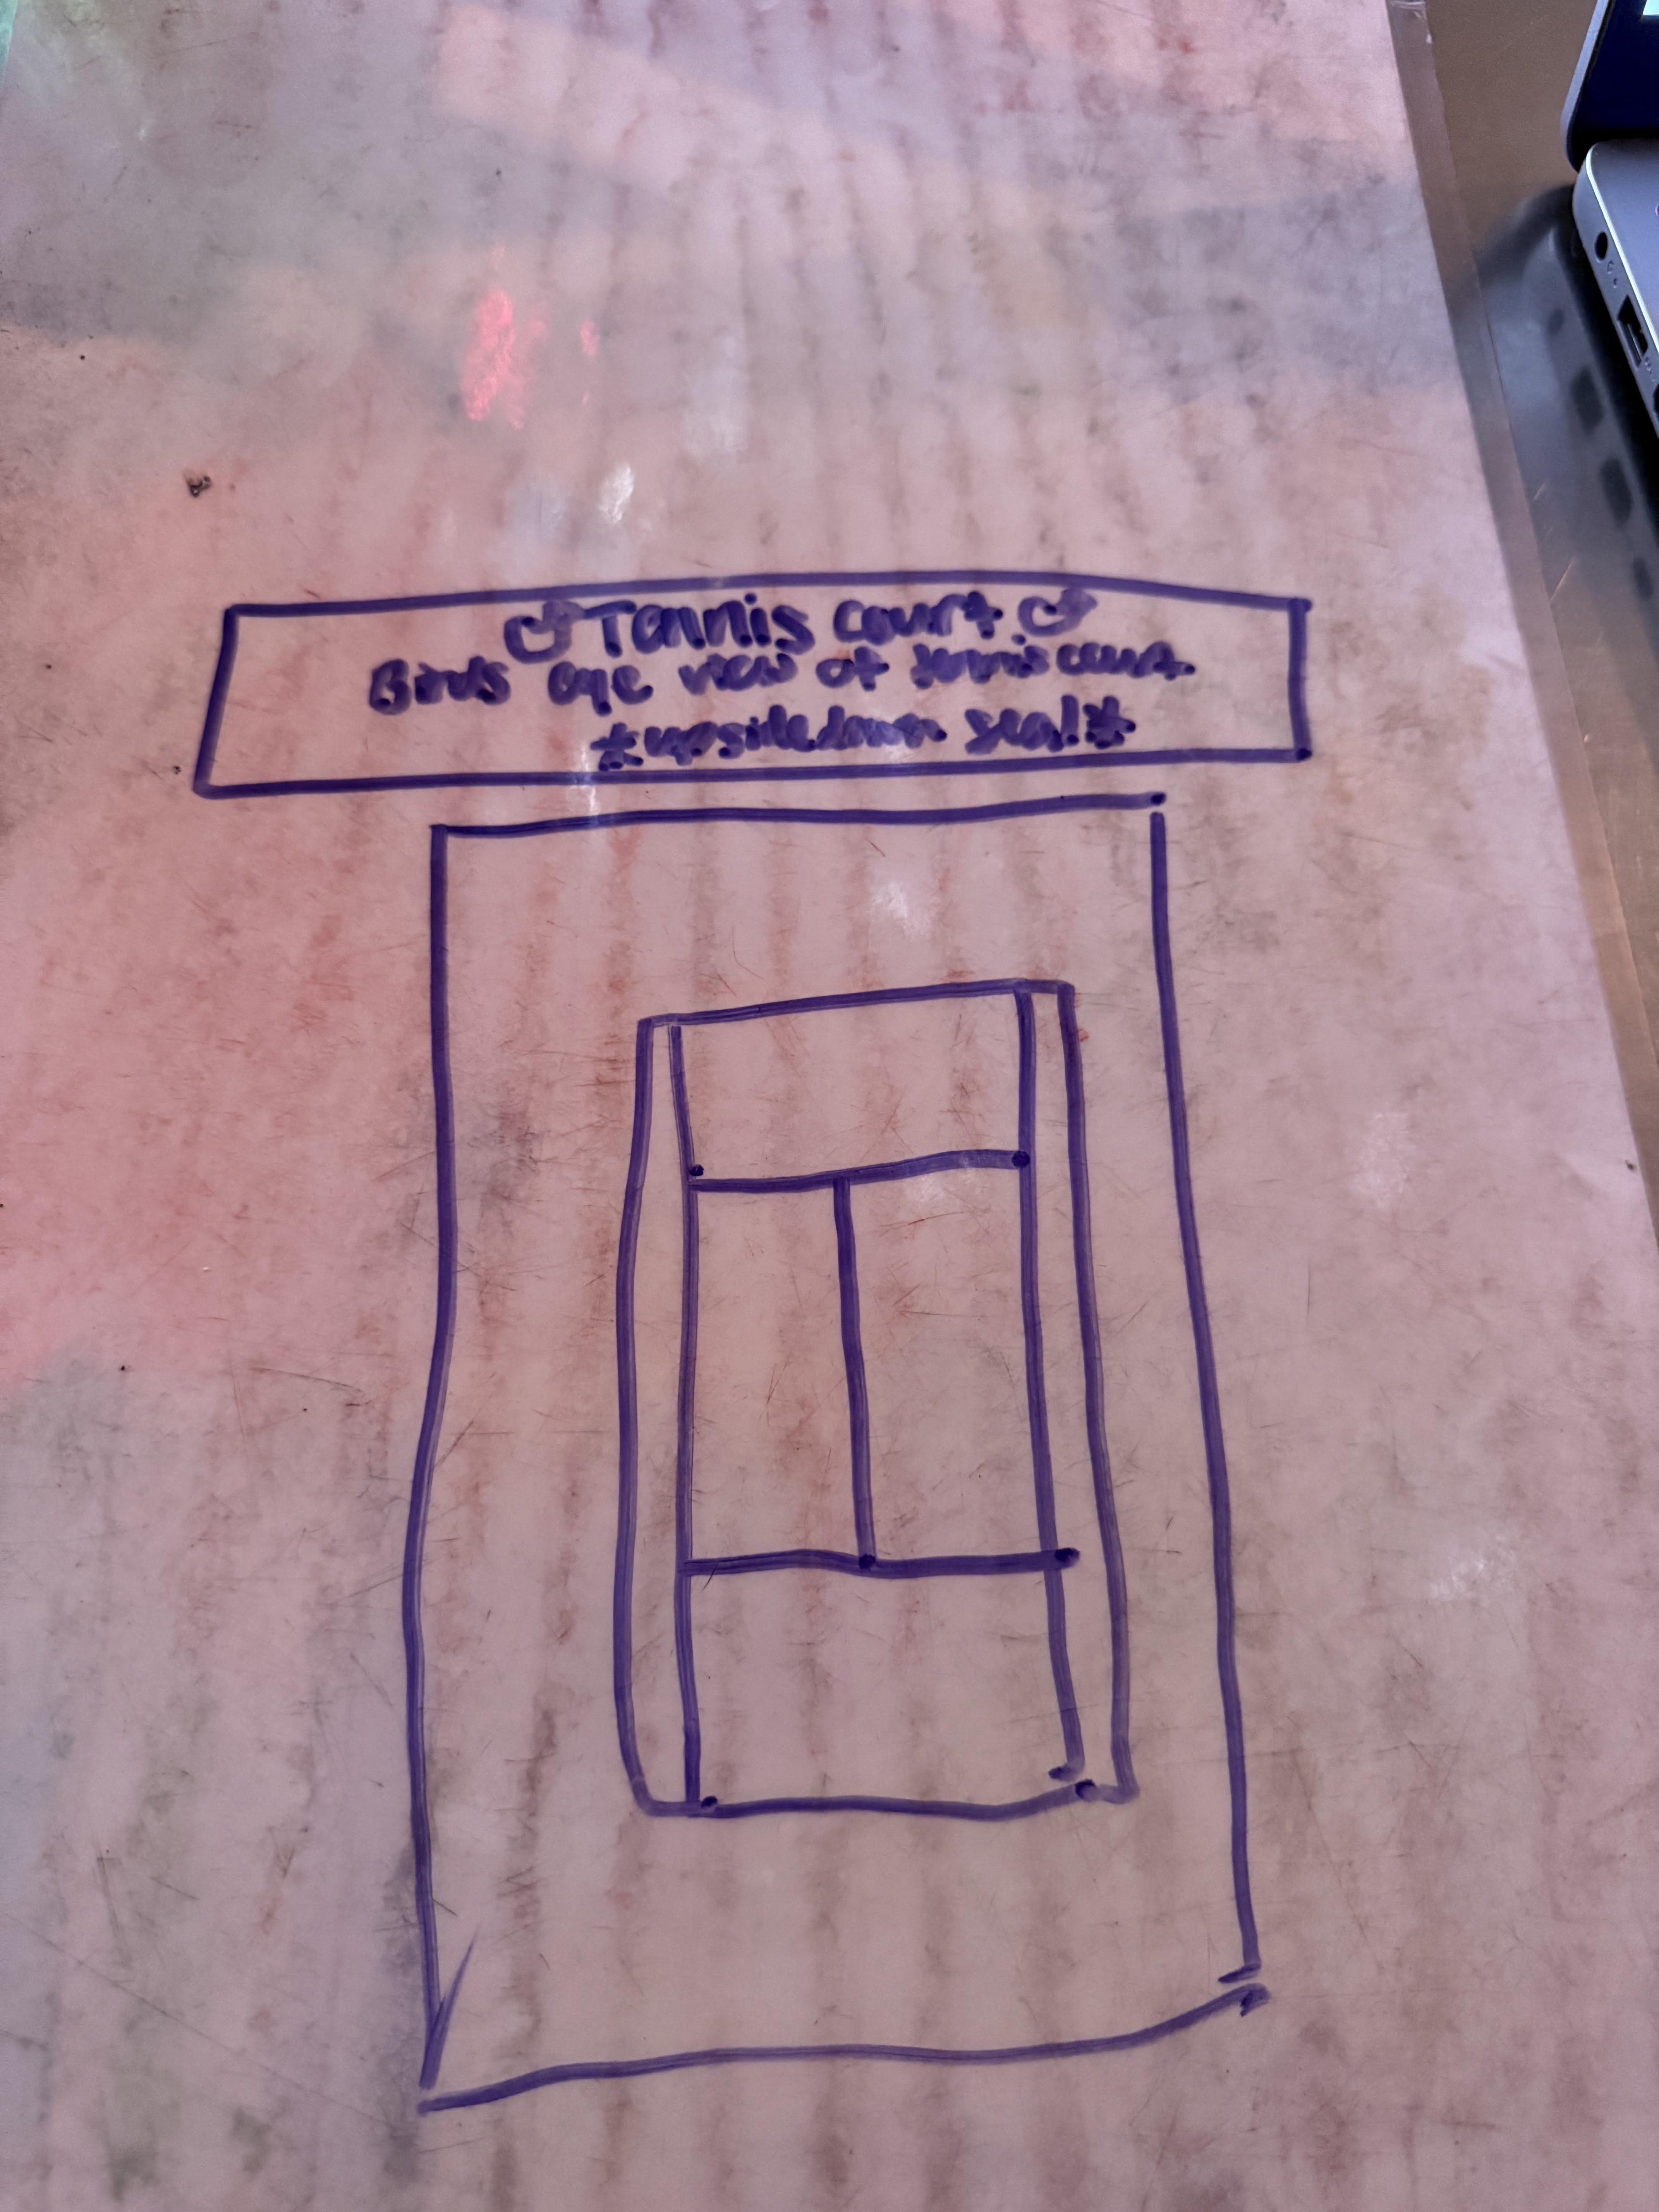 Tennis court
Birds eye view of tennis court.
*upsidedown seal*